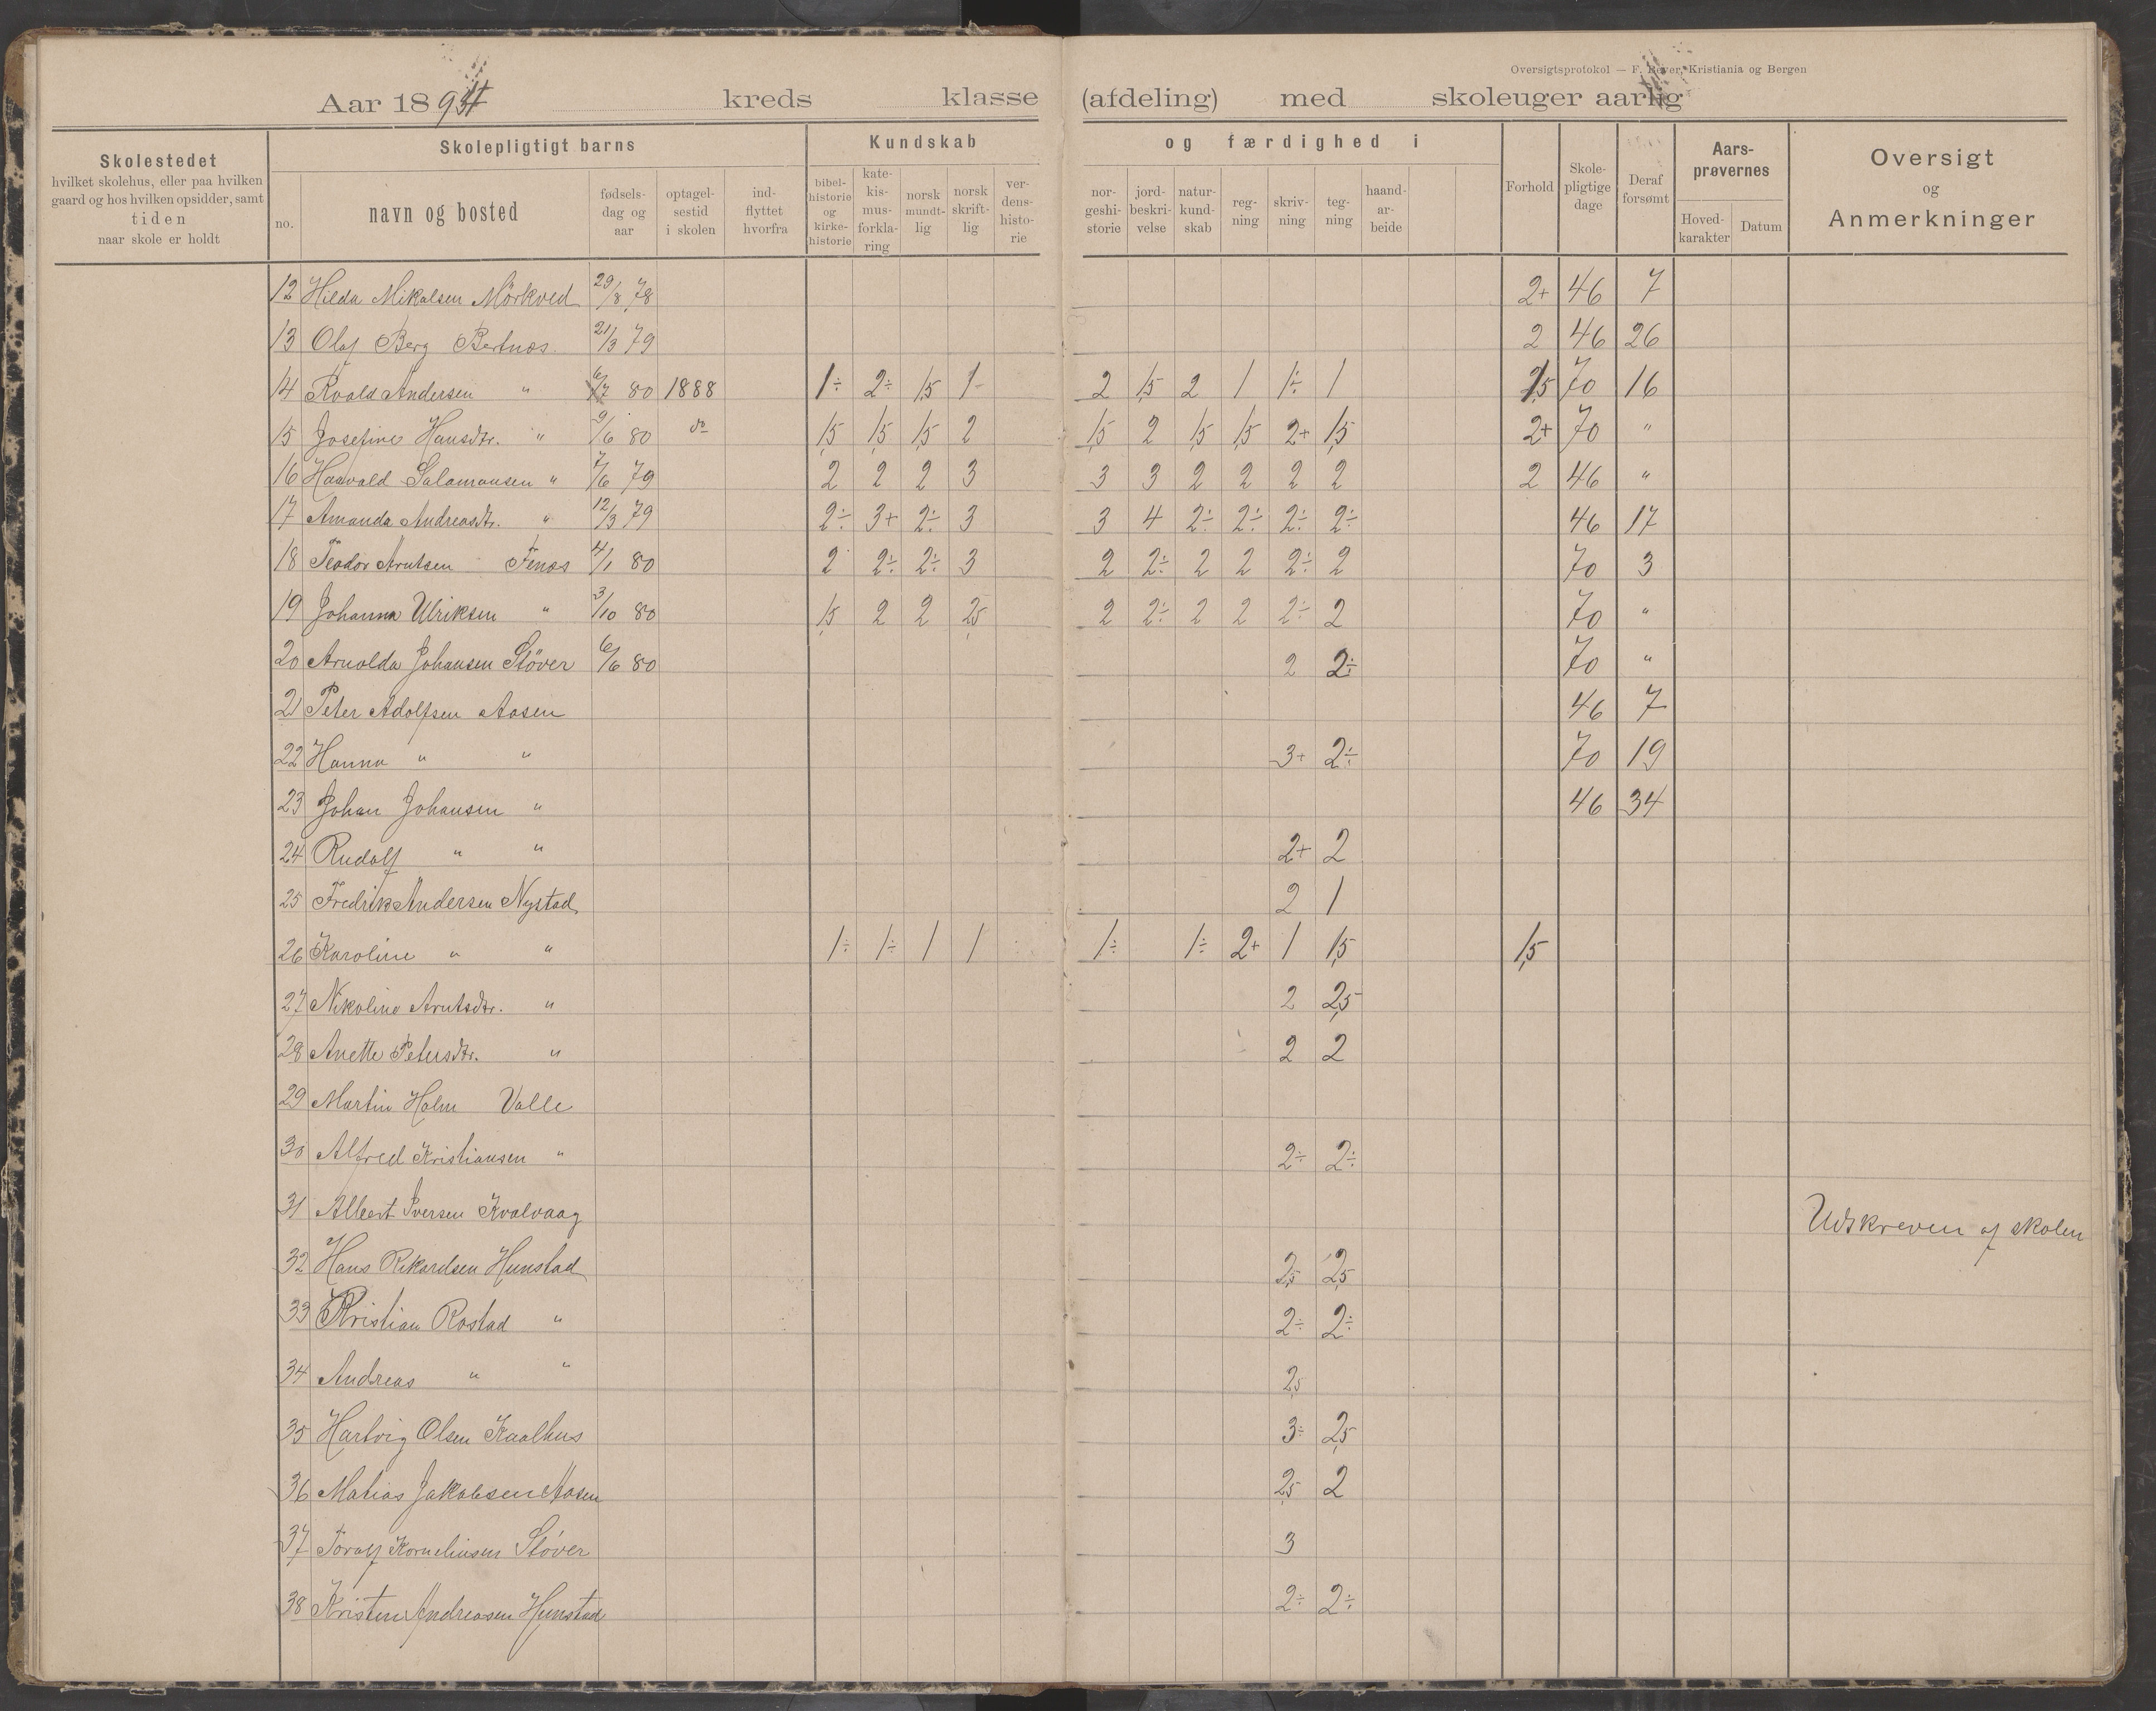 Oversigtsprotokol — F. Beyer, Kristiania og Bergen
Aar 1893 kreds klasse (afdeling) med skoleuger aarlig
Skolestedet hvilket skolehus, eller paa hvilken gaard og hos hvilken opsidder, samt tiden naar skole er holdt
Skolepligtigt barns
no. navn og bosted fødsels-dag og aar optagel-sestid i skolen ind-flyttet hvorfra
Kundskab og færdighed i
bibel-historie og kirke-historie kate-kis-mus-forkla-ring norsk mundt-lig norsk skrift-lig ver-dens-histo-rie nor-geshi-storie jord-beskri-velse natur-kund-skab reg-ning skriv-ning teg-ning haand-ar-beide
Forhold Skole-pligtige dage Deraf forsømt
Aars-prøvernes Hoved-karakter Datum
Oversigt og Anmerkninger
12 Hilda Mikalsen Mörkved 29/8 78 2+ 46 7
13 Olaf Berg Bertnæs. 21/3 79 2 46 26
14 Roald Andersen " 80 1888 1÷ 2÷ 1,5 1- 2 1,5 2 1 1÷ 1 70 16
15 Josefine Hansdtr. " 9/6 80 do 1,5 1,5 1,5 2 1,5 2 1,5 1,5 2+ 1,5 2+ 70 "
16 Haavald Salamonsen " 7/6 79 2 2 2 3 3 3 2 2 2 2 2 46 "
17 Amanda Andreasdtr. " 12/3 79 2÷ 3+ 2÷ 3 3 4 2÷ 2÷ 2÷ 2÷ 46 17
18 Teodor Arntsen Fenes 4/1 80 2 2÷ 2÷ 3 2 2÷ 2 2 2÷ 2 70 3
19 Johanna Ulriksen " 3/10 80 1,5 2 2 2,5 2 2÷ 2 2 2÷ 2 70 "
20 Arnolda Johansen Støver 6/6 80 2 2÷ 70 "
21 Peter Adolfsen Aasen 46 7
22 Hanna " " 3+ 2÷ 70 19
23 Johan Johansen " 46 34
24 Rudolf " " 2+ 2
25 Fredrik Andersen Nystad 2 1
26 Karoline " " 1÷ 1÷ 1 1 1÷ 1÷ 2+ 1 1,5 1,5
27 Nikoline Arntsdtr. " 2 2,5
28 Anette Petersdtr. " 2 2
29 Martin Holm Valle
30 Alfred Kristiansen " 2÷ 2÷
31 Albert Iversen Kvalvaag Udskreven af skolen
32 Hans Rikardsen Hunstad 2,5 2,5
33 Kristian Rostad " 2÷ 2÷
34 Andreas " " 2,5
35 Hartvig Olsen Kaalhus 3÷ 2,5
36 Matias Jakobsen Aasen 2,5 2
37 Toralf Korneliusen Støver 3
38 Kristen Andreasen Hunstad 2÷ 2÷